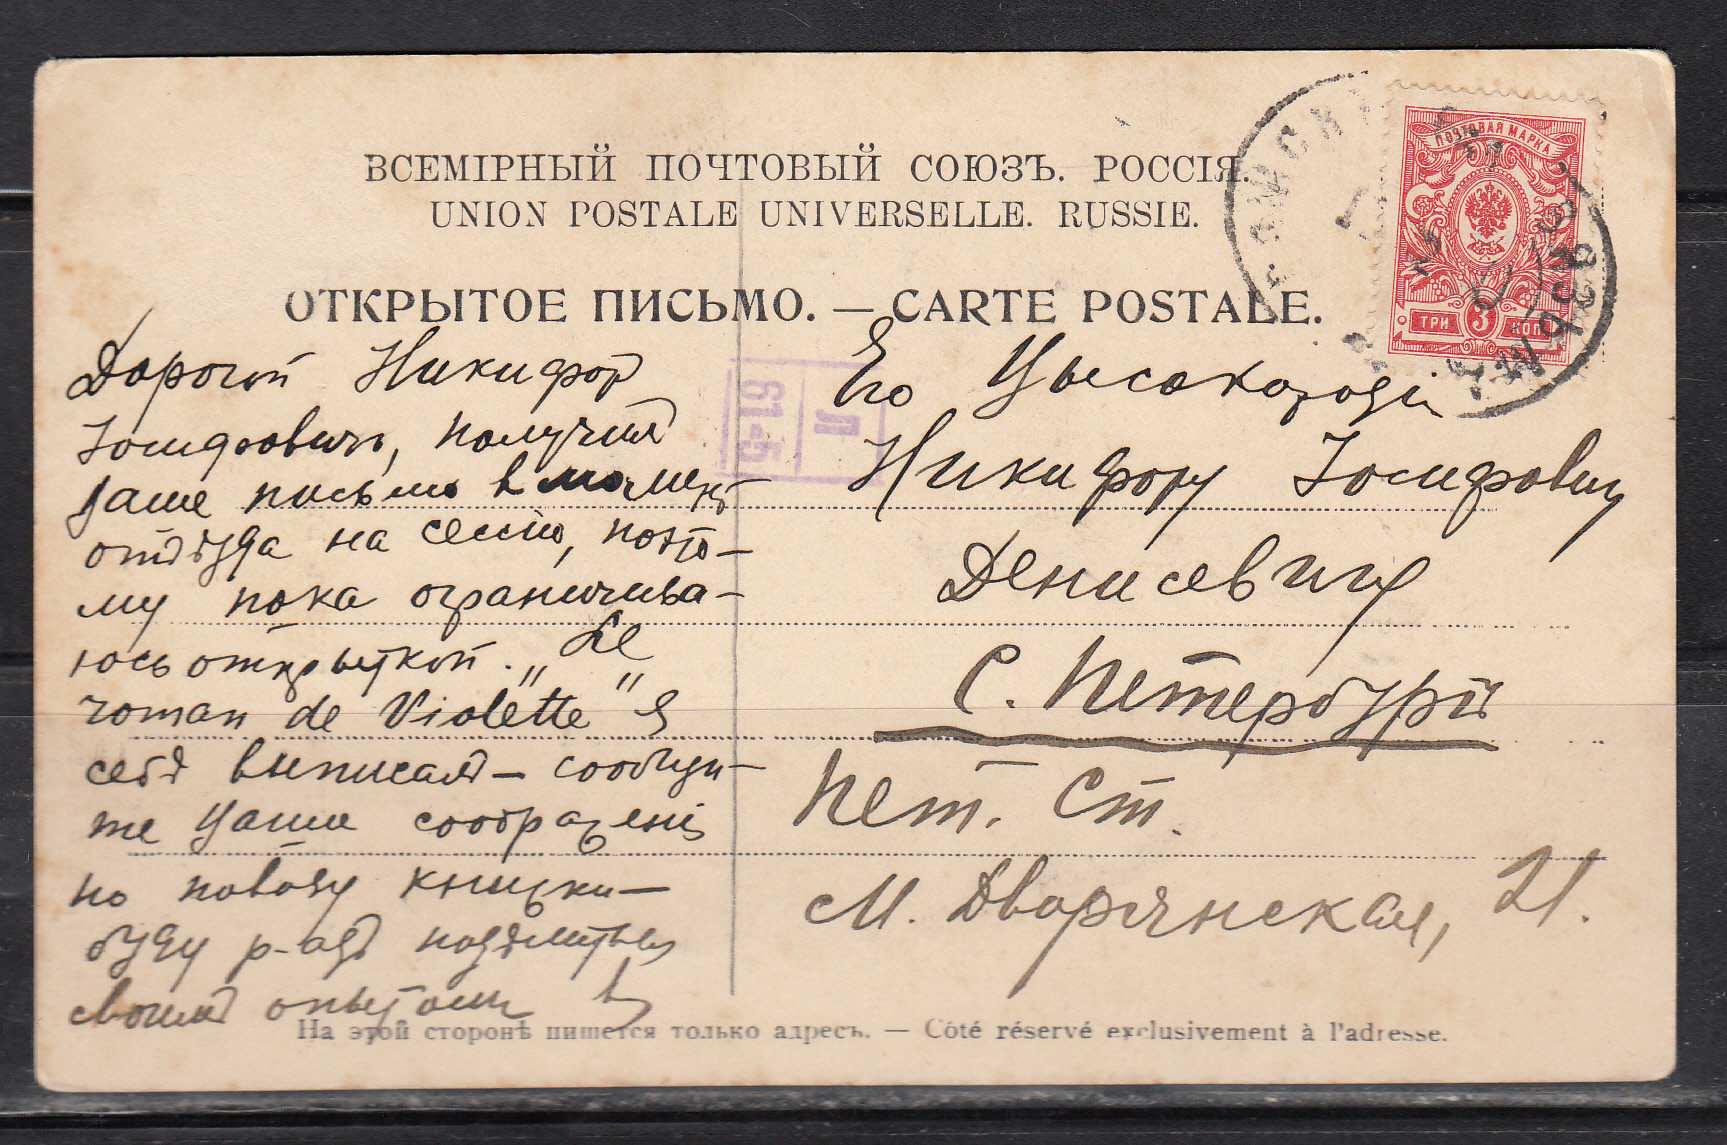 ВСЕМІРНЫЙ ПОЧТОВЫЙ СОЮЗЪ. РОССІЯ.
UNION POSTALE UNIVERSELLE. RUSSIE.
ОТКРЫТОЕ ПИСЬМО. — CARTE POSTALE.
ПОЧТОВАЯ МАРКА
ТРИ 3 КОП
Л
61-5
Дорогой Никифор
Іосифович, получил
Ваше письмо в момент
отъѣзда на сессію, поэто-
му пока ограничива-
юсь открыткой. „Le
roman de Violette" я
себѣ выписал — сообщи-
те Ваши соображенія
по поводу книжки —
буду рад подѣлиться
своим опытом
Его Высокородію
Никифору Іосифовичу
Денисевичу
С. Петербург
Пет. Ст.
М. Дворянская, 21.
На этой сторонѣ пишется только адресъ. — Côté réservé exclusivement à l'adresse.